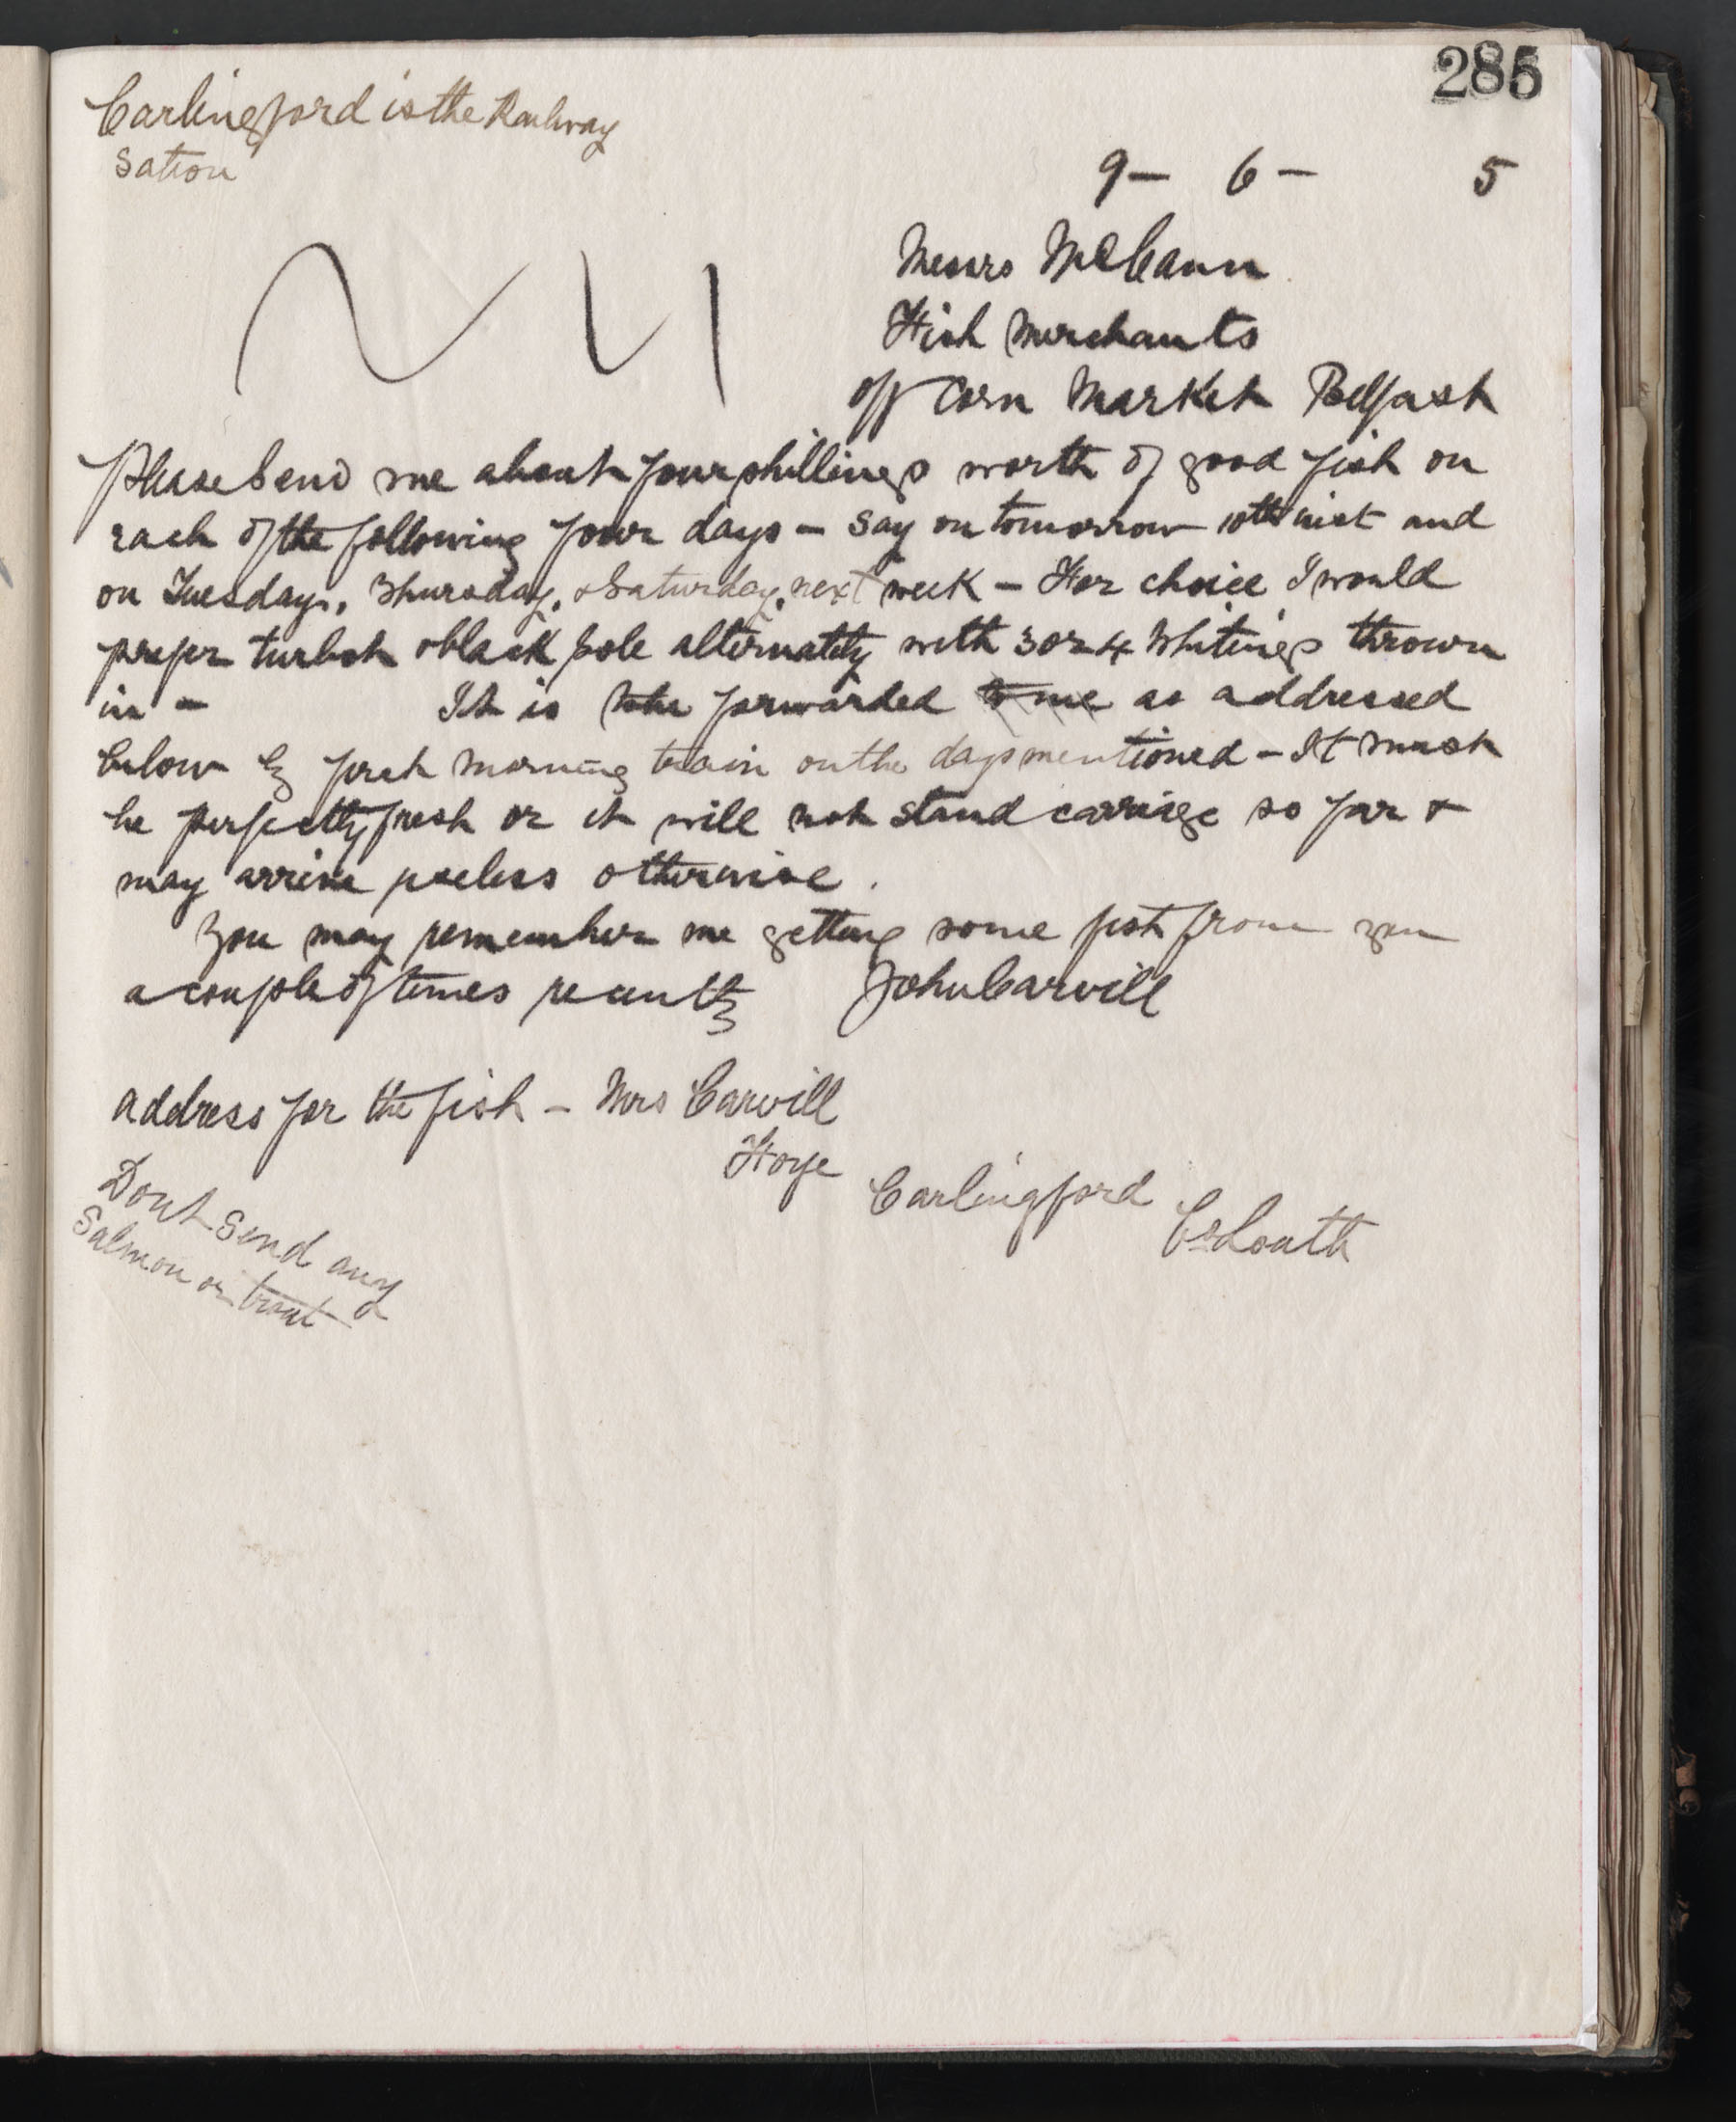 285
Carlingford is the Railway
Sation
9 - 6 - 5
Messrs McCann
Fish Merchants
off Corn Market Belfast
Please send me about four shillings worth of good fish on
each of the following four days - say on tomorrow 10th inst and
on Tuesday, Thursday, & Saturday, next week - For choice I would
prefer turbot & black sole alternately with 3 or 4 Whitings thrown
in - It is to be forwarded to me as addressed
below by first morning train on the days mentioned - It must
be perfectly fresh or it will not stand carriage so far &
may arrive useless otherwise.
You may remember me getting some fish from you
a couple of times recently John Carvill
address for the fish - Mrs Carvill
Carlingford
Co Louth
Dont send any
Salmon or trout